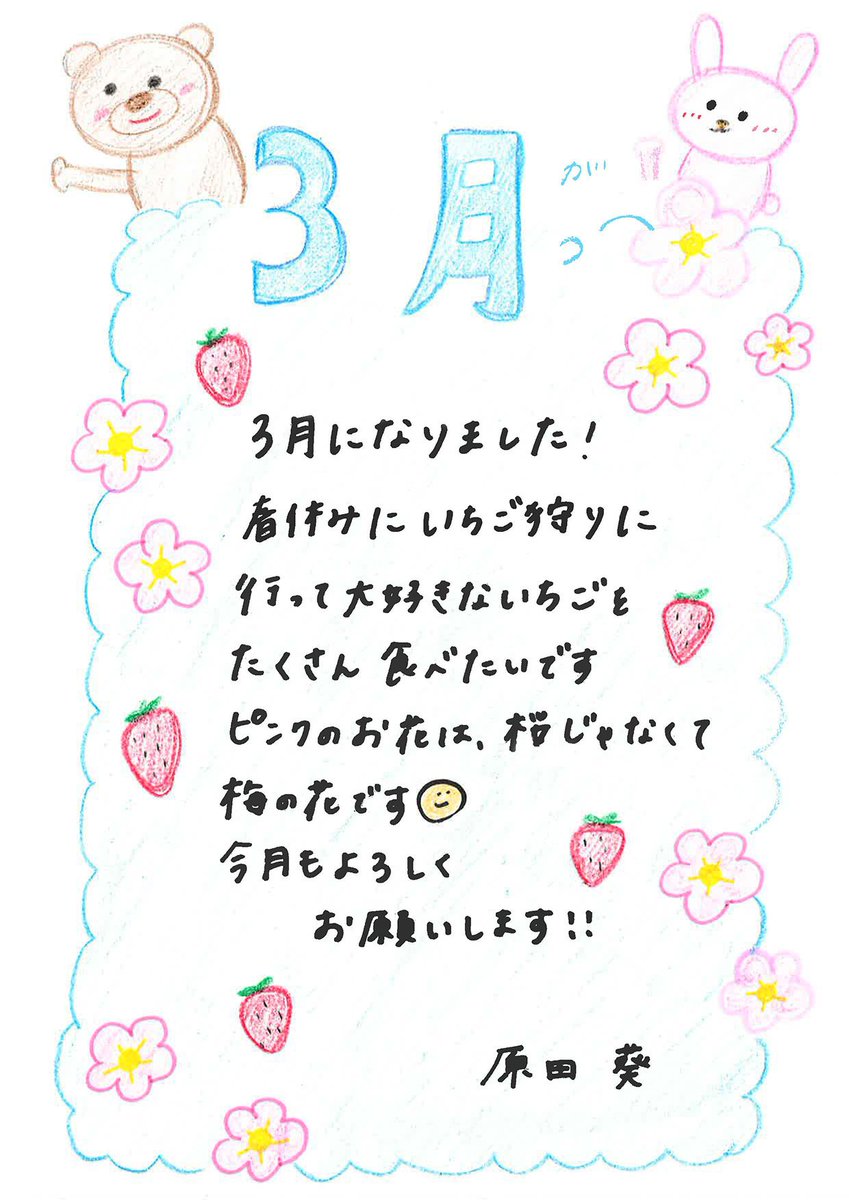 3月
がっ
3月になりました!
春休みにいちご狩りに
行って大好きないちごを
たくさん食べたいです
ピンクのお花は、桜じゃなくて
梅の花です
今月もよろしく
お願いします!!
原田 葵